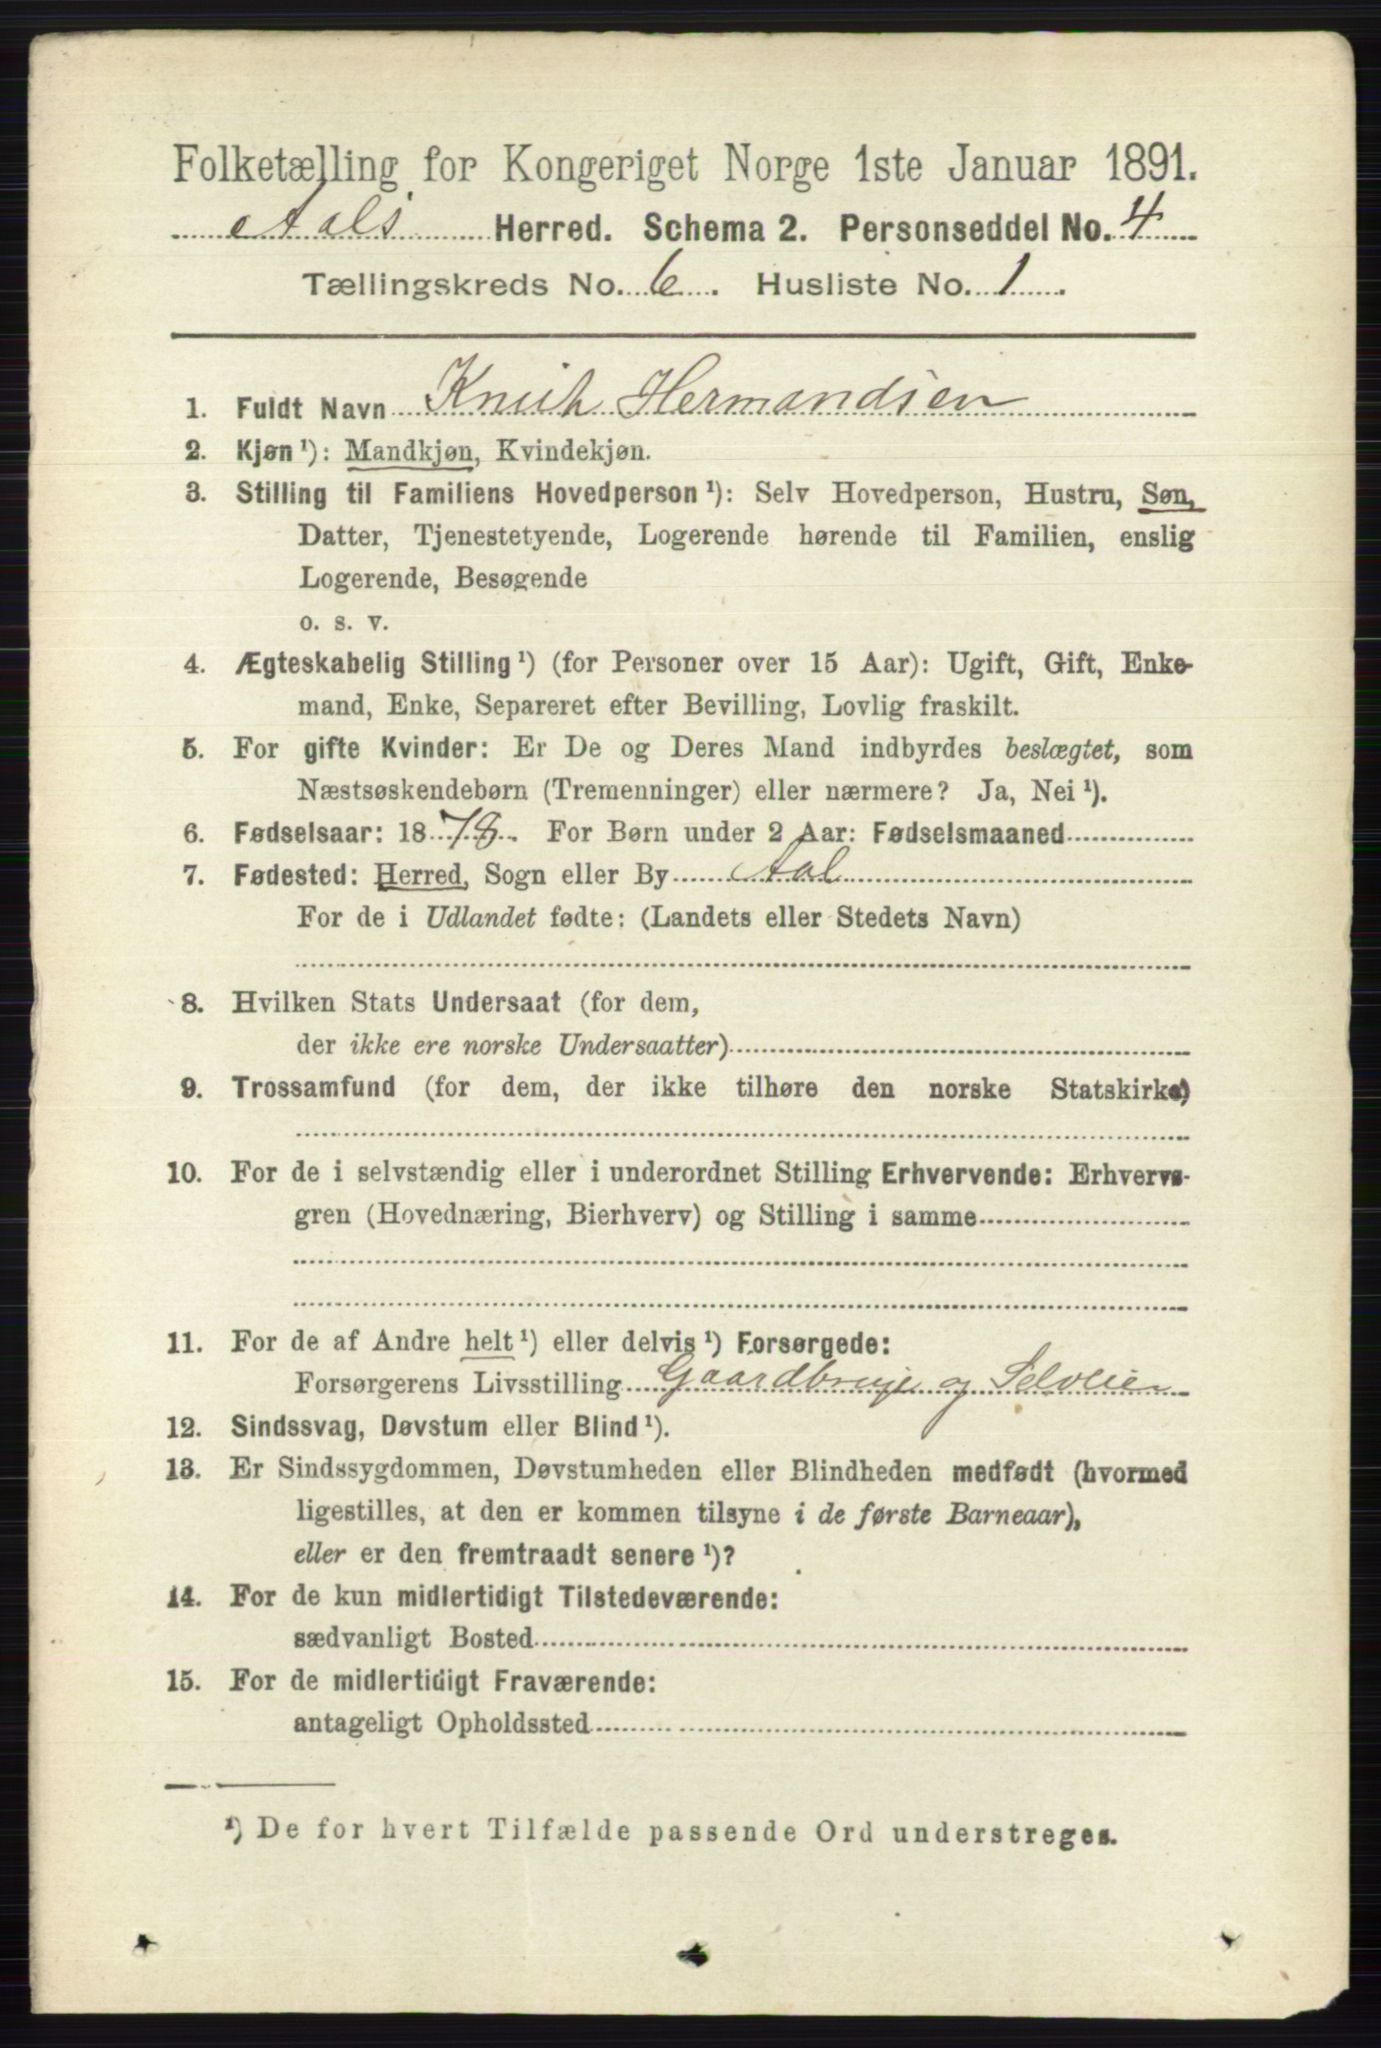 Folketælling for Kongeriget Norge 1ste Januar 1891.
Aals Herred. Schema 2. Personseddel No. 4
Tællingskreds No. 6. Husliste No. 1.
1. Fuldt Navn Knut Hermandsen
2. Kjøn¹): Mandkjøn, Kvindekjøn.
3. Stilling til Familiens Hovedperson¹): Selv Hovedperson, Hustru, Søn,
Datter, Tjenestetyende, Logerende hørende til Familien, enslig
Logerende, Besøgende
o. s. v.
4. Ægteskabelig Stilling¹) (for Personer over 15 Aar): Ugift, Gift, Enke-
mand, Enke, Separeret efter Bevilling, Lovlig fraskilt.
5. For gifte Kvinder: Er De og Deres Mand indbyrdes beslægtet, som
Næstsøskendebørn (Tremenninger) eller nærmere? Ja, Nei¹).
6. Fødselsaar: 1878. For Børn under 2 Aar: Fødselsmaaned
7. Fødested: Herred, Sogn eller By Aal
For de i Udlandet fødte: (Landets eller Stedets Navn)
8. Hvilken Stats Undersaat (for dem,
der ikke ere norske Undersaatter)
9. Trossamfund (for dem, der ikke tilhøre den norske Statskirke)
10. For de i selvstændig eller i underordnet Stilling Erhvervende: Erhvervs-
gren (Hovednæring, Bierhverv) og Stilling i samme
11. For de af Andre helt¹) eller delvis¹) Forsørgede:
Forsørgerens Livsstilling Gaardbruger og Selveier
12. Sindssvag, Døvstum eller Blind¹).
13. Er Sindssygdommen, Døvstumheden eller Blindheden medfødt (hvormed
ligestilles, at den er kommen tilsyne i de første Barneaar),
eller er den fremtraadt senere¹)?
14. For de kun midlertidigt Tilstedeværende:
sædvanligt Bosted
15. For de midlertidigt Fraværende:
antageligt Opholdssted
¹) De for hvert Tilfælde passende Ord understreges.